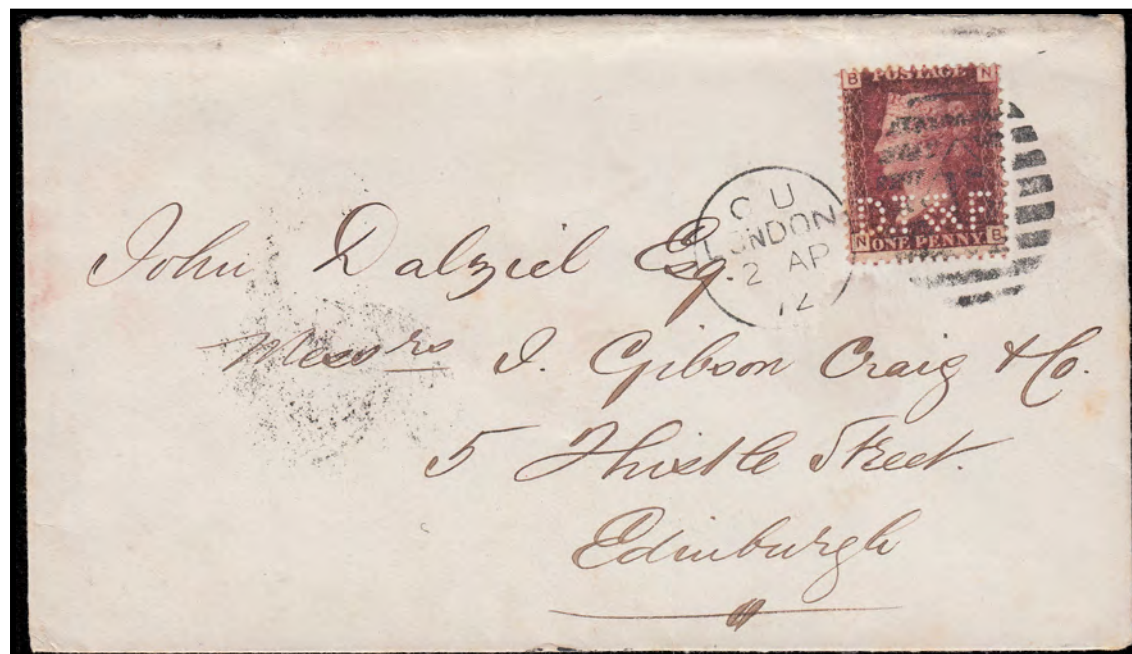 B POSTAGE N
N ONE PENNY B
C U
LONDON
2 AP
72
John Dalziel Esq.
Messrs J. Gibson Craig & Co.
5 Thistle Street.
Edinburgh